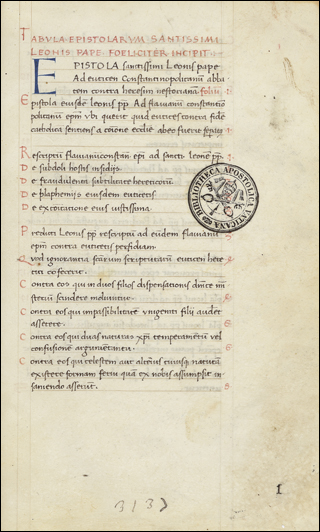 TABVLA EPISTOLARVM SANTISSIMI
LEONIS PAPE FOELICITER INCIPIT
EPISTOLA santissimi Leonis pape
Ad euticen Constantinopolitanũ abba
tem contra heresim nestorianã folio 1
Epistola eiusdẽ leonis pp Ad flauianũ constantino
politanũ epm̃ vbi querit quid eutices contra fidẽ
catholicã sentiens a cõione ecclie abeo fuerit
Rescriptũ flauiani constan epi ad sanctũ leonẽ pp
De subdoli hostis insidijs
De fraudulenta subtilitate hereticorũ
De blasphemijs eiusdem euticetis
De excõicatione eius iustissima
Prediti Leonis pp rescriptũ ad eũdem flauianũ
epm̃ contra euticetis perfidiam
Quod ignorantia scarum scripturarũ euticen here
ticũ cõfecerit
Contra eos qui in duos filios dispensationis dnice mi
steriũ scindere moliuntur
Contra eos qui impassibilitatẽ vnigeniti filij audẽt
asserere
Contra eos qui duas naturas xpi temperamentũ vel
confusionẽ
Contra eos qui celestem aut alterius cuiusq naturã
existere formam serui quã ex nobis assumpsit in
saniendo asserũt
BIBLIOTHECA APOSTOLICA VATICANA
3137
1